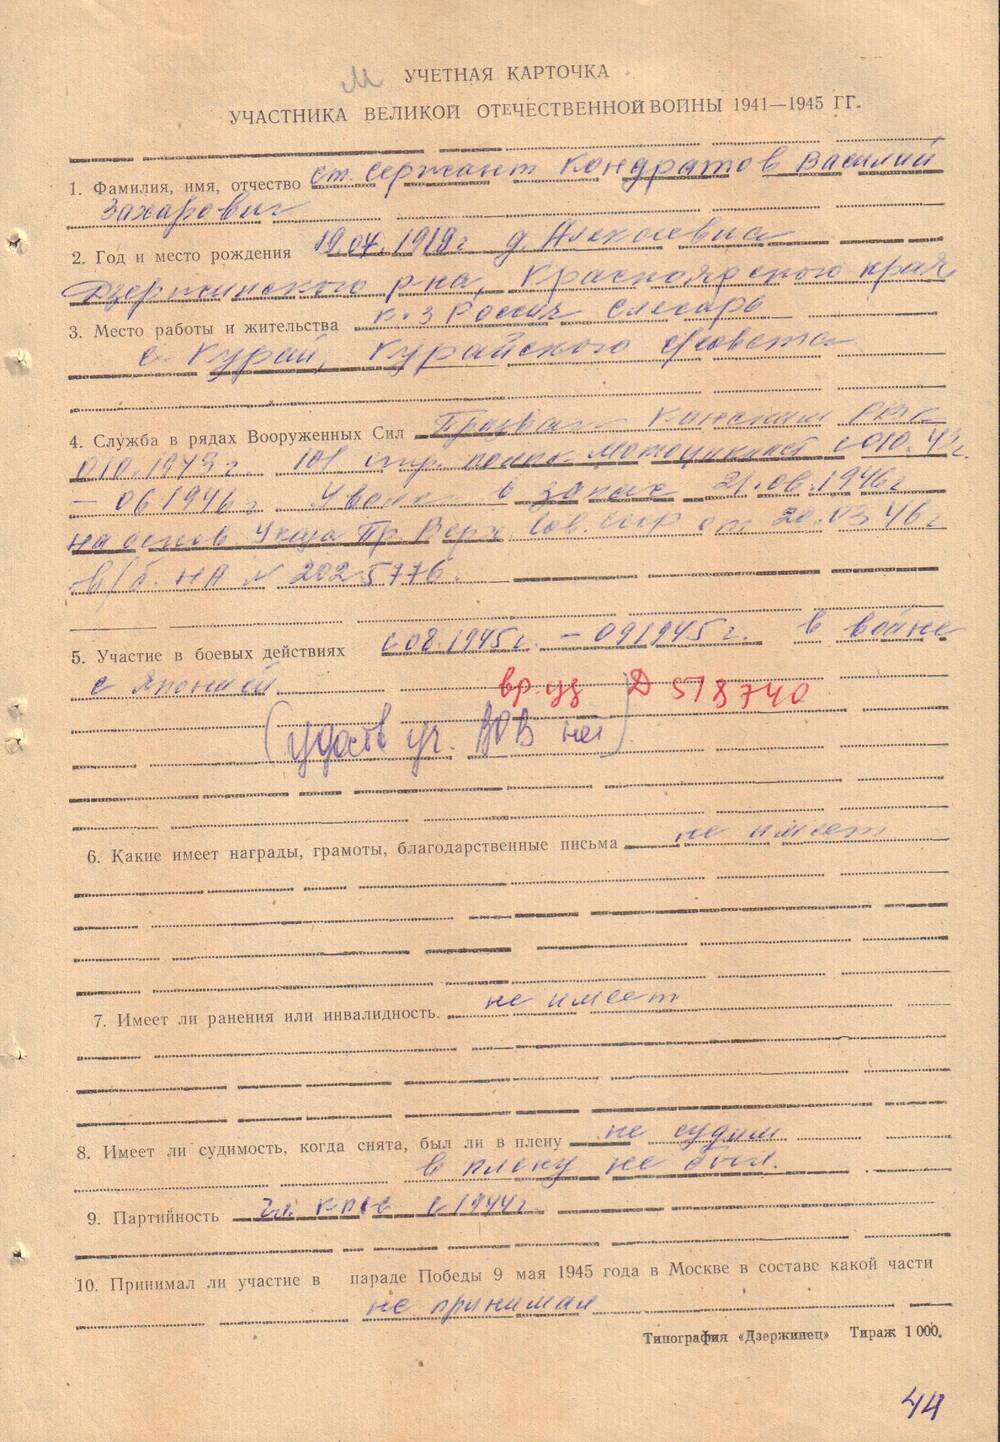 М
УЧЕТНАЯ КАРТОЧКА
УЧАСТНИКА ВЕЛИКОЙ ОТЕЧЕСТВЕННОЙ ВОЙНЫ 1941—1945 ГГ.
1. Фамилия, имя, отчество ст. сержант Кондратов Василий
Захарович
2. Год и место рождения д. Алексеевка
Дзержинского р-на, Красноярского края
3. Место работы и жительства к-з Россия слесарь
с Курай, Курайского с/совета
4. Служба в рядах Вооруженных Сил Призван Канским РВК
101 стр. полк мотоциклист с 010.43г.
– 06.1946г. Уволен в запас 21.06.1946г
на основ Указа Пр Верх Сов. ссср от 20.03.46г
в/б. НА № 2025776.
5. Участие в боевых действиях с 08.1945г. – 09.1945г. в войне
с Японией
вр уд Д 518740
(удост уч. ВОВ нет)
6. Какие имеет награды, грамоты, благодарственные письма не имеет
7. Имеет ли ранения или инвалидность. не имеет
8. Имеет ли судимость, когда снята, был ли в плену не судим
в плену не был.
9. Партийность чл КПСС с 1944г
10. Принимал ли участие в параде Победы 9 мая 1945 года в Москве в составе какой части
не принимал
Типография «Дзержинец» Тираж 1 000.
44